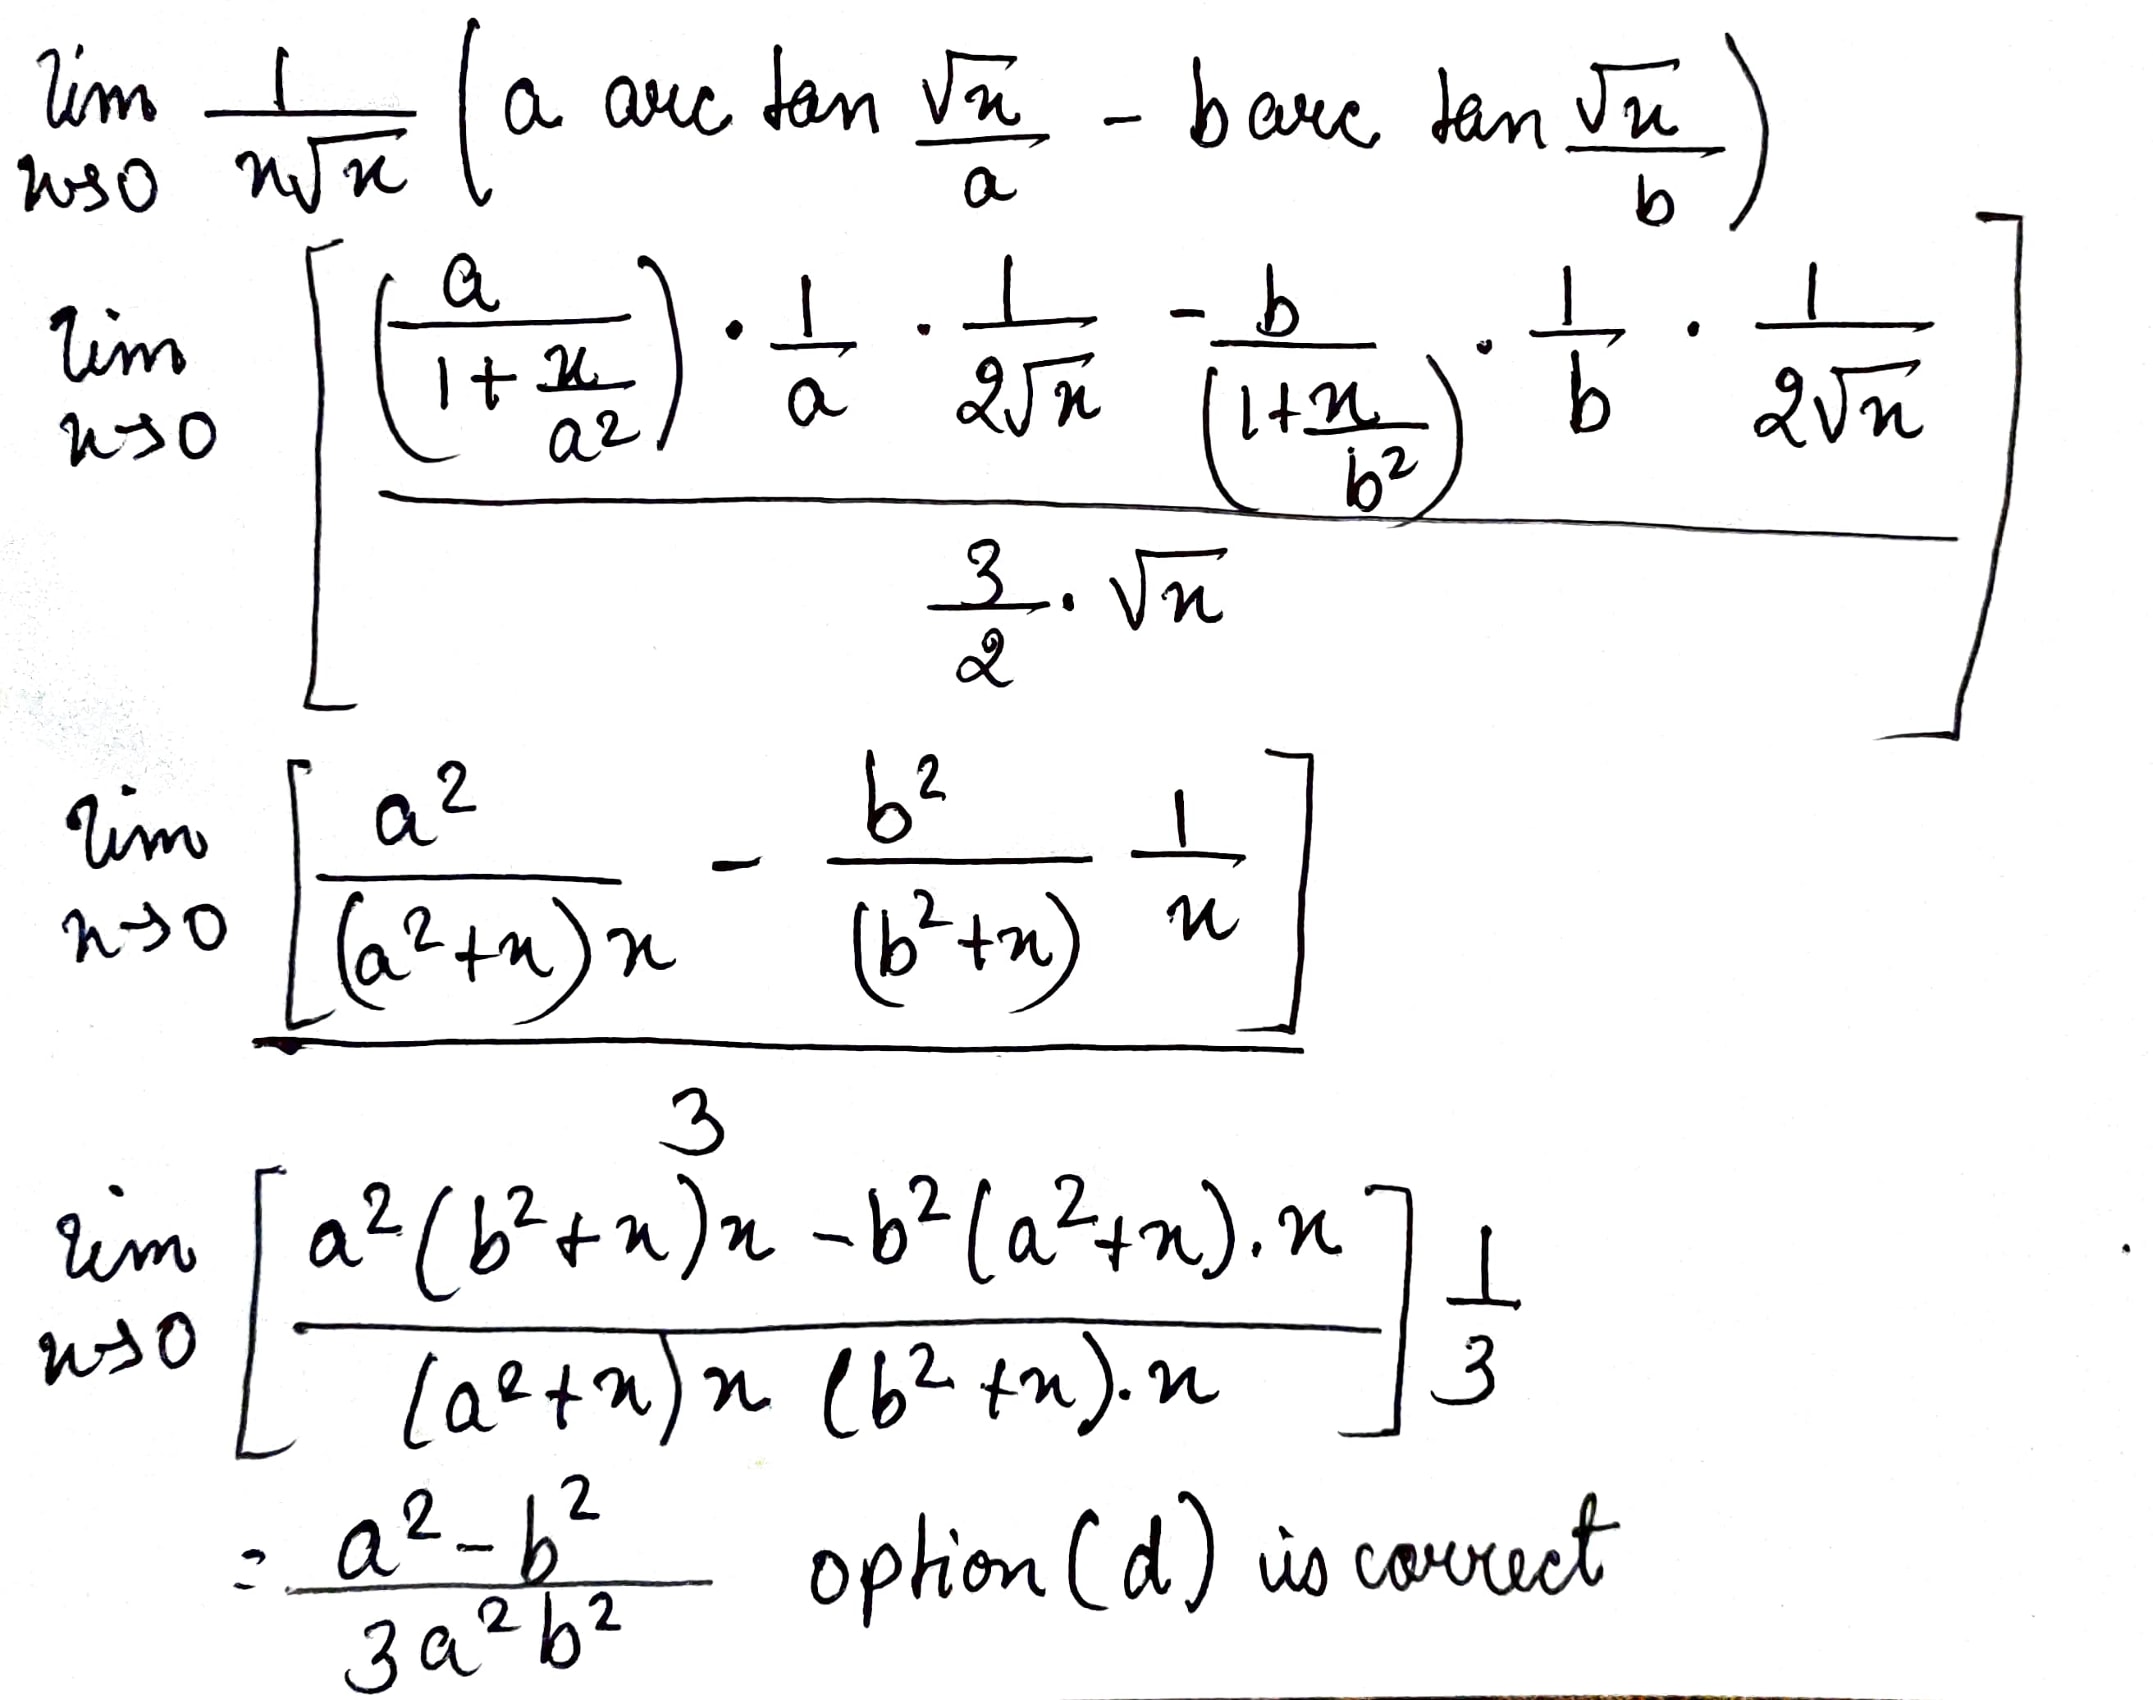 lim x→0 1/(x√x) (a arc tan √x/a - b arc tan √x/b)
lim x→0 [ ( (a/(1+x/a²)) · 1/a · 1/(2√x) - b/(1+x/b²) · 1/b · 1/(2√x) ) / ( 3/2 · √x ) ]
lim x→0 [ a²/((a²+x)x) - b²/(b²+x) 1/x ] / 3
lim x→0 [ ( a²(b²+x)x - b²(a²+x).x ) / ( (a²+x)x (b²+x).x ) ] 1/3
= (a²-b²)/(3a²b²) option (d) is correct